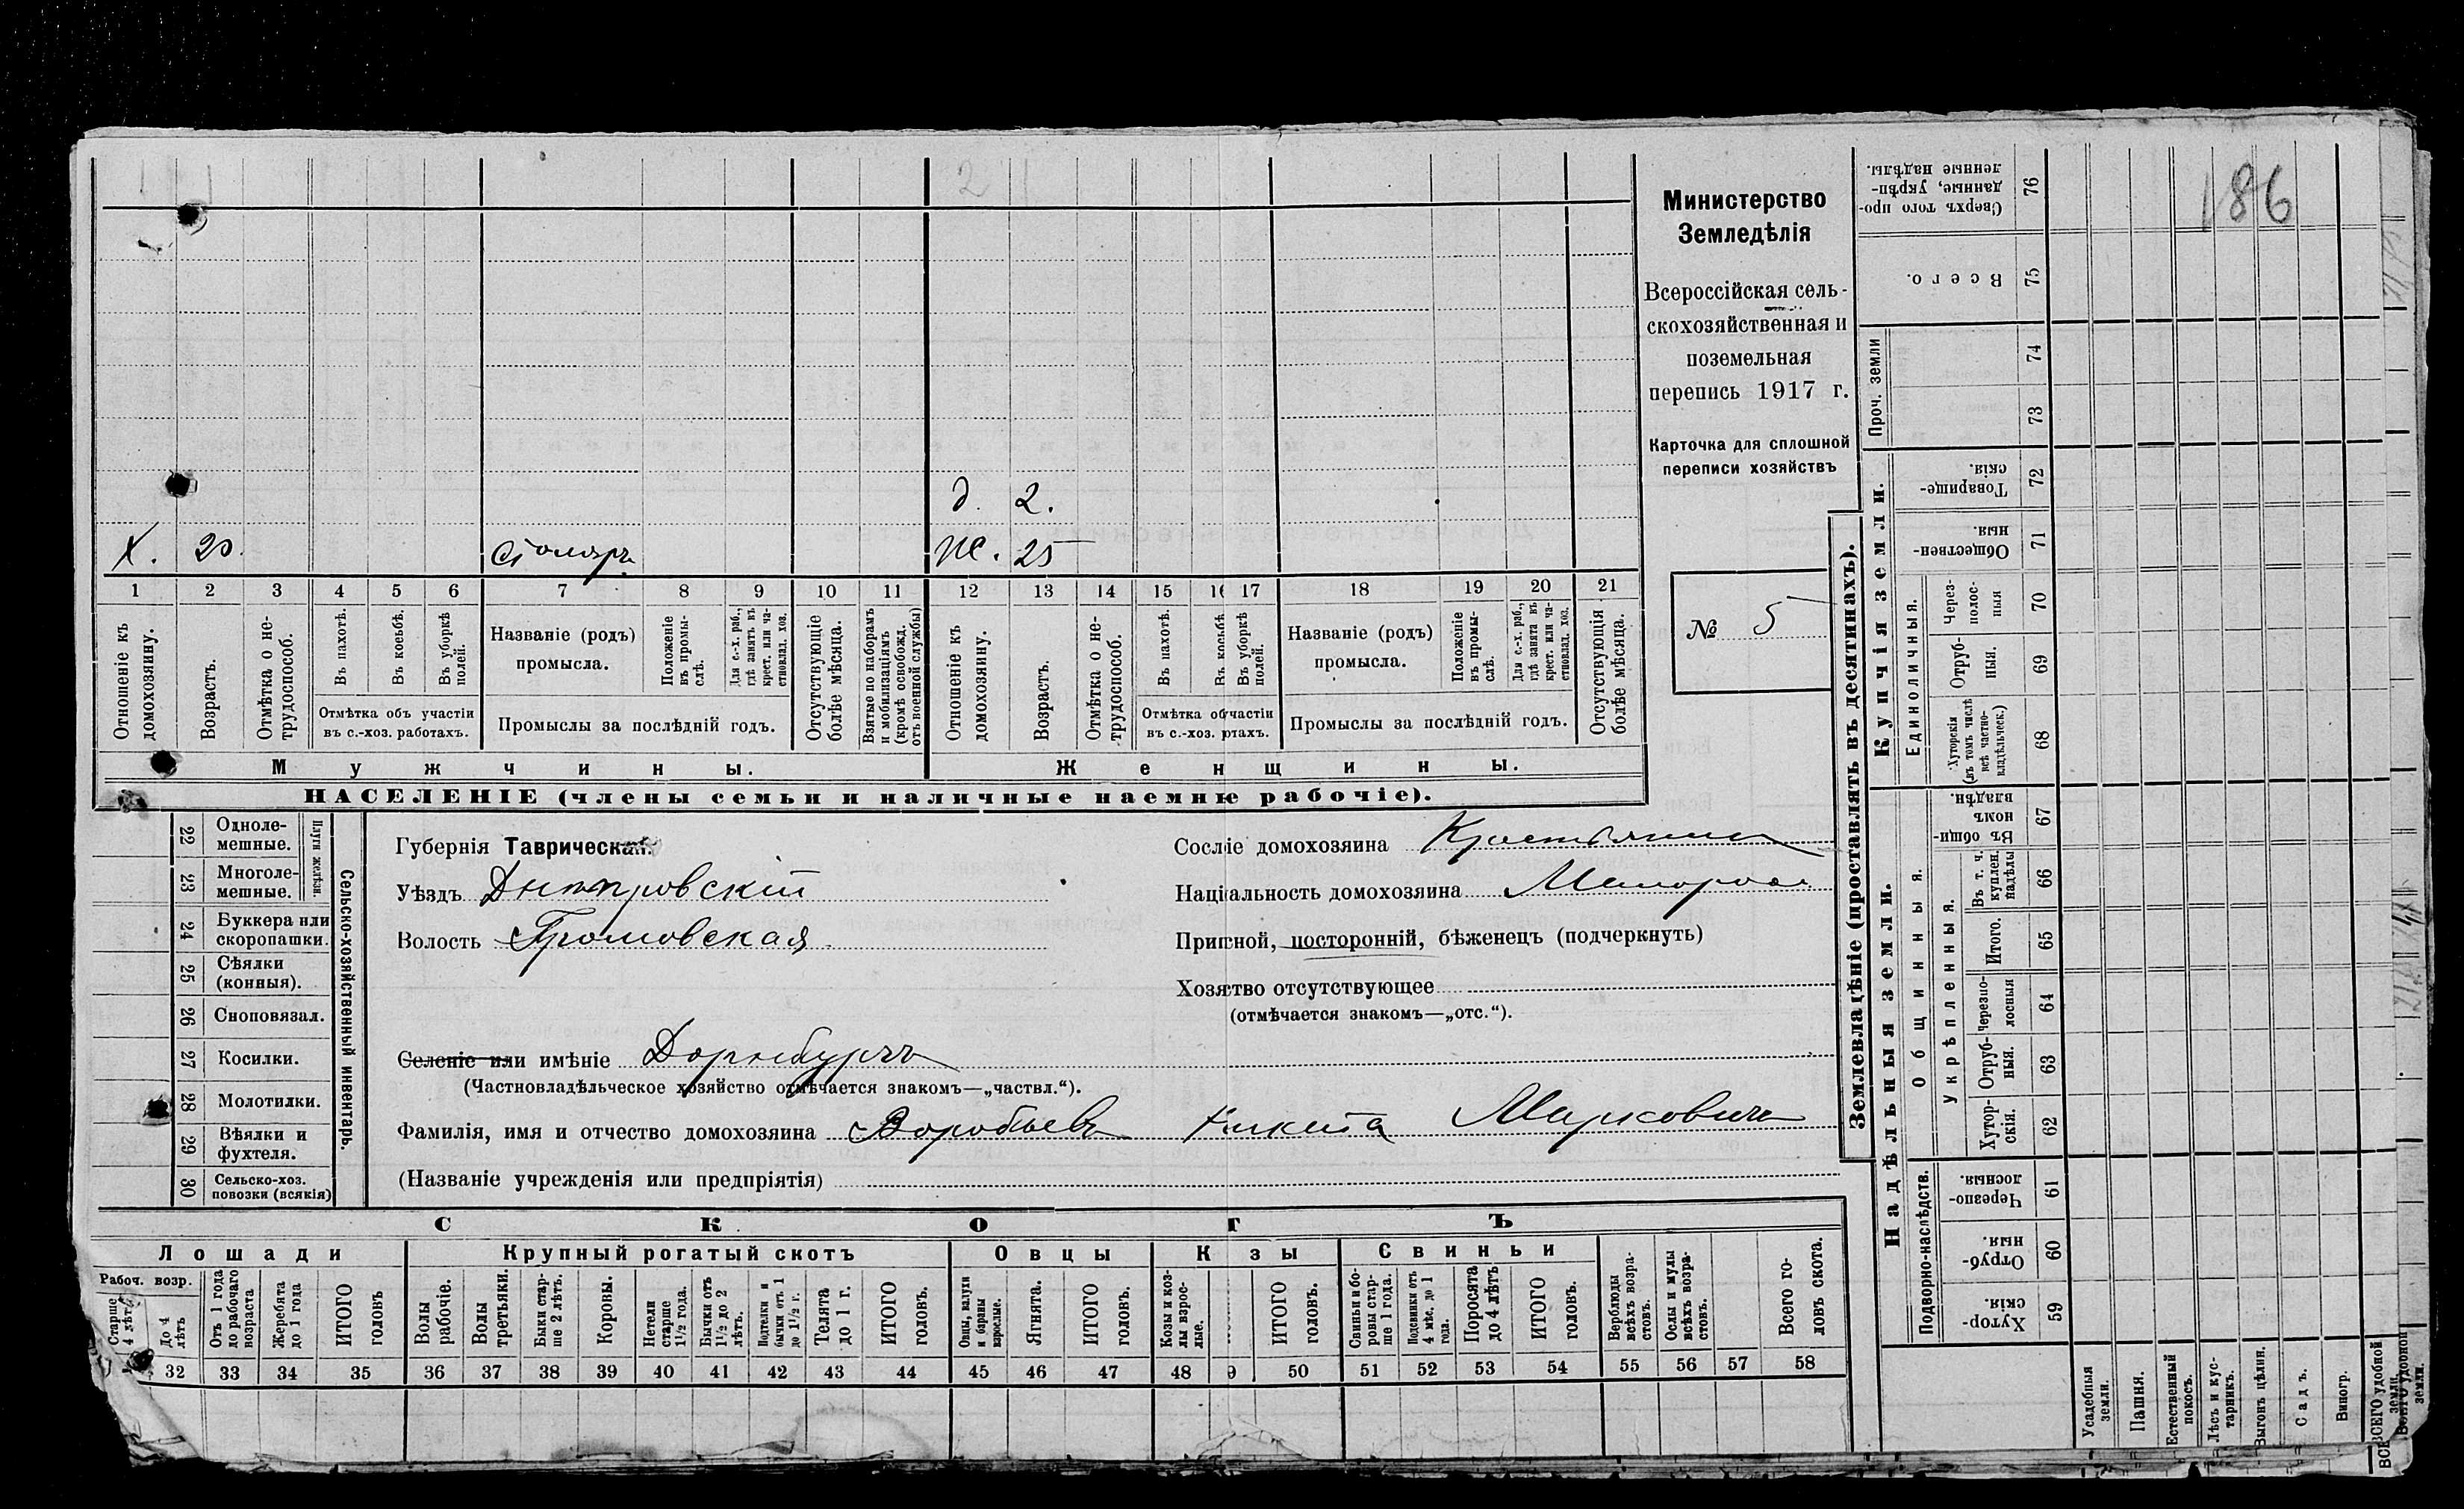 1 1 2 1
д. 2.
Х. 20. столяръ ж. 25
1 2 3 4 5 6 7 8 9 10 11 12 13 14 15 16 17 18 19 20 21
Отношеніе къ домохозяину.
Возрастъ.
Отмѣтка о не-трудоспособ.
Въ пахотѣ.
Въ косьбѣ.
Въ уборкѣ полей.
Отмѣтка объ участіи
въ с.-хоз. работахъ.
Названіе (родъ)
промысла.
Положеніе въ промы-слѣ.
Для с.-х. раб., гдѣ занятъ въ крест. или ча-стновлад. хоз.
Промыслы за послѣдній годъ.
Отсутствующіе болѣе мѣсяца.
Взятые по наборамъ и мобилизаціямъ (кромѣ освобожд. отъ военной службы)
Отношеніе къ домохозяину.
Возрастъ.
Отмѣтка о не-трудоспособ.
Въ пахотѣ.
Въ косьбѣ
Въ уборкѣ полей.
Отмѣтка об участіи
въ с.-хоз. ртахъ.
Названіе (родъ)
промысла.
Положеніе въ промы-слѣ.
Для с.-х. раб., гдѣ занята въ крест. или ча-стновлад. хоз.
Промыслы за послѣдній годъ.
Отсутствующія болѣе мѣсяца.
Мужчины. Женщины.
НАСЕЛЕНІЕ (члены семьи и наличные наемные рабочіе).
Министерство
Земледѣлія
Всероссійская сель-
скохозяйственная и
поземельная
перепись 1917 г.
Карточка для сплошной
переписи хозяйствъ
№ 5
22 Одноле-мешные.
23 Многоле-мешные.
Плуги желѣзн.
24 Буккера или скоропашки.
25 Сѣялки (конныя).
26 Сноповязал.
27 Косилки.
28 Молотилки.
29 Вѣялки и фухтеля.
30 Сельско-хоз. повозки (всякія)
Сельско-хозяйственный инвентарь.
Губернія Таврическая.
Уѣздъ Днѣпровскій
Волость Громовская
Селеніе или имѣніе Дорнбургъ
(Частновладѣльческое хозяйство отмѣчается знакомъ—„частвл.“).
Фамилія, имя и отчество домохозяина Воробьевъ Никита Марковичъ
(Названіе учрежденія или предпріятія)
Сословіе домохозяина Крестьянин
Національность домохозяина Малоросс
Приписной, посторонній, бѣженецъ (подчеркнуть)
Хозяйство отсутствующее
(отмѣчается знакомъ—„отс.“).
СКОТЪ
Лошади Крупный рогатый скотъ Овцы Козы Свиньи
Рабоч. возр.
Старше 4 лѣтъ
До 4 лѣтъ
Отъ 1 года до рабочаго возраста
Жеребята до 1 года
ИТОГО головъ
Волы рабочіе.
Волы третьяки.
Быки стар-ше 2 лѣтъ.
Коровы.
Нетели старше 1½ года.
Бычки отъ 1½ до 2 лѣтъ.
Подтелки и бычки отъ 1 до 1½ г.
Телята до 1 г.
ИТОГО головъ.
Овцы, валухи и бараны взрослые.
Ягнята.
ИТОГО головъ.
Козы и коз-лы взрос-лые.
ИТОГО головъ.
Свиньи и бо-ровы стар-ше 1 года.
Подсвинки отъ 4 мѣс. до 1 года.
Поросята до 4 лѣтъ
ИТОГО головъ.
Верблюды всѣхъ возра-стовъ.
Ослы и мулы всѣхъ возра-стовъ.
Всего го-ловъ скота.
32 33 34 35 36 37 38 39 40 41 42 43 44 45 46 47 48 9 50 51 52 53 54 55 56 57 58
186
Землевладѣніе (проставлять въ десятинахъ).
Сверхъ того про-данные, укрѣп-ленные надѣлы. 76
Всего. 75
Проч. земли 74 73
Купчія земли.
Товарище-скія. 72
Обществен-ныя 71
Единоличныя.
Через-полос-ныя 70
Отруб-ныя. 69
Хуторскія (въ томъ числѣ всѣ частно-владѣльческ.) 68
Надѣльныя земли.
Общинныя.
Въ общи-номъ владѣн. 67
Укрѣпленныя.
Въ т. ч. куплен. надѣлы 66
Итого. 65
Черезпо-лосныя 64
Отруб-ныя. 63
Хутор-скія. 62
Подворно-наслѣдств.
Черезпо-лосныя. 61
Отруб-ныя. 60
Хутор-скія. 59
Усадебныя земли.
Пашня.
Естественный покосъ.
Лѣсъ и кус-тарникъ.
Выгонъ цѣлин.
Садъ.
Виногр.
ВСЕГО удобной земли.